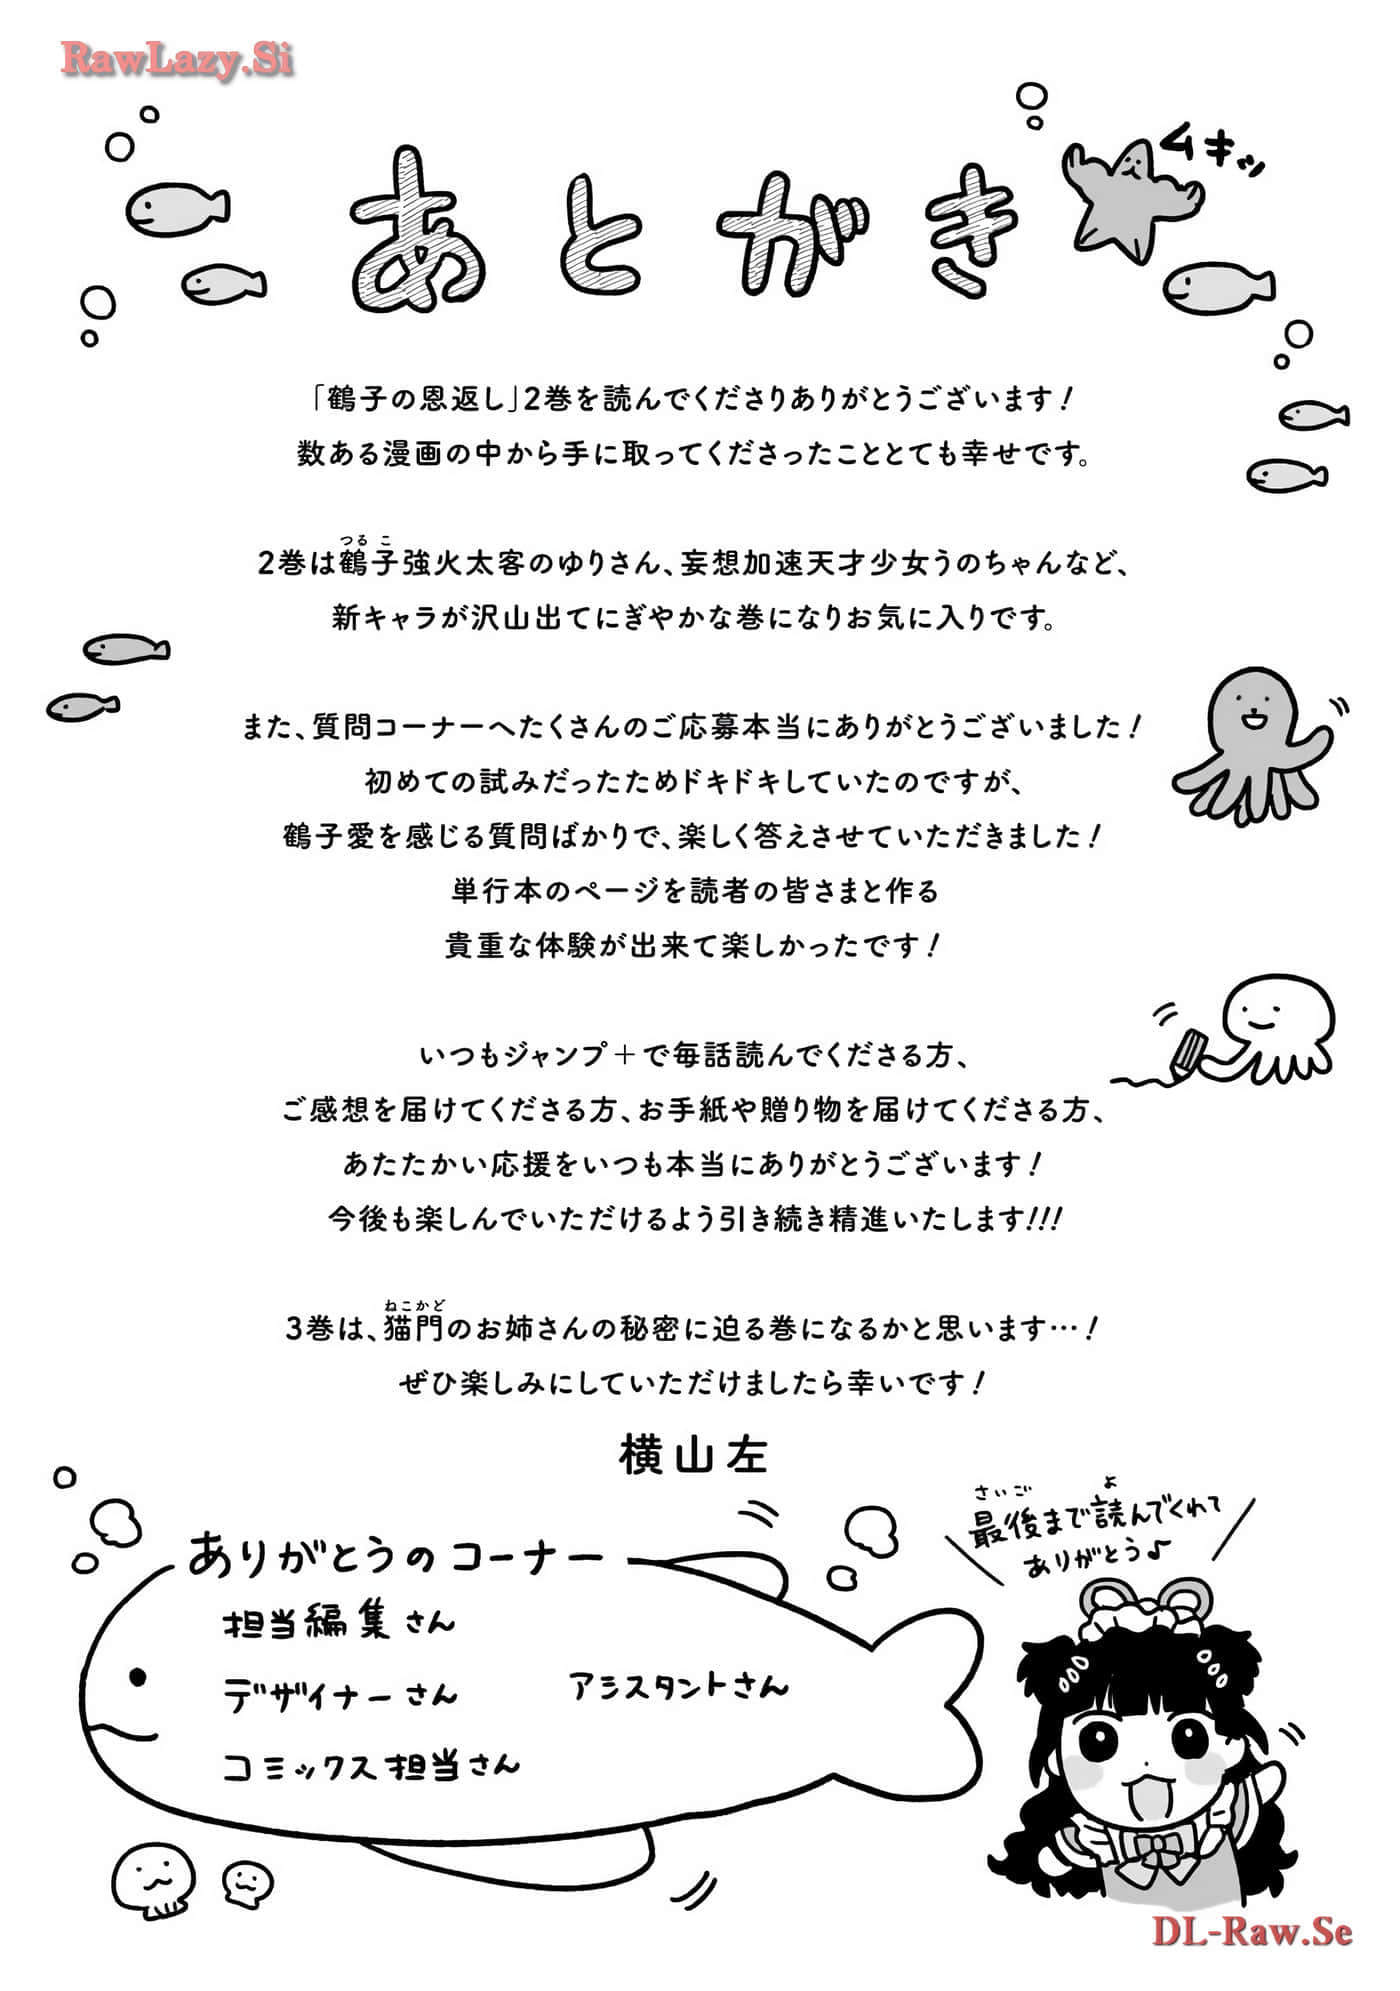 RawLazy.Si
あとがき
ムキッ
「鶴子の恩返し」2巻を読んでくださりありがとうございます!
数ある漫画の中から手に取ってくださったこととても幸せです。
つるこ
2巻は鶴子強火太客のゆりさん、妄想加速天才少女うのちゃんなど、
新キャラが沢山出てにぎやかな巻になりお気に入りです。
また、質問コーナーへたくさんのご応募本当にありがとうございました!
初めての試みだったためドキドキしていたのですが、
鶴子愛を感じる質問ばかりで、楽しく答えさせていただきました!
単行本のページを読者の皆さまと作る
貴重な体験が出来て楽しかったです!
いつもジャンプ+で毎話読んでくださる方、
ご感想を届けてくださる方、お手紙や贈り物を届けてくださる方、
あたたかい応援をいつも本当にありがとうございます!
今後も楽しんでいただけるよう引き続き精進いたします!!!
ねこかど
3巻は、猫門のお姉さんの秘密に迫る巻になるかと思います…!
ぜひ楽しみにしていただけましたら幸いです!
横山左
ありがとうのコーナー
担当編集さん
デザイナーさん
アシスタントさん
コミックス担当さん
さいご よ
最後まで読んでくれて
ありがとう♪
DL-Raw.Se